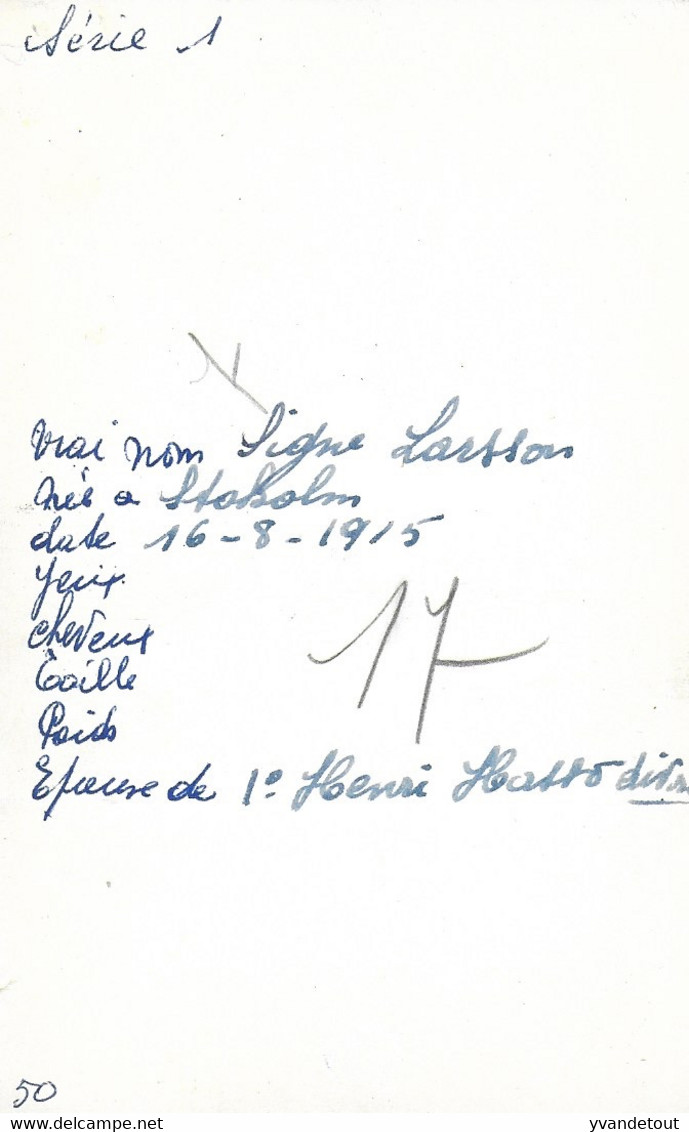 Série 1
vrai nom Signe Larsson
née a Stokolm
date 16-8-1915
Yeux
cheveux
Taille
17
Poids
Epouse de 1º Henri Hasso
50
delcampe.net
yvandetout